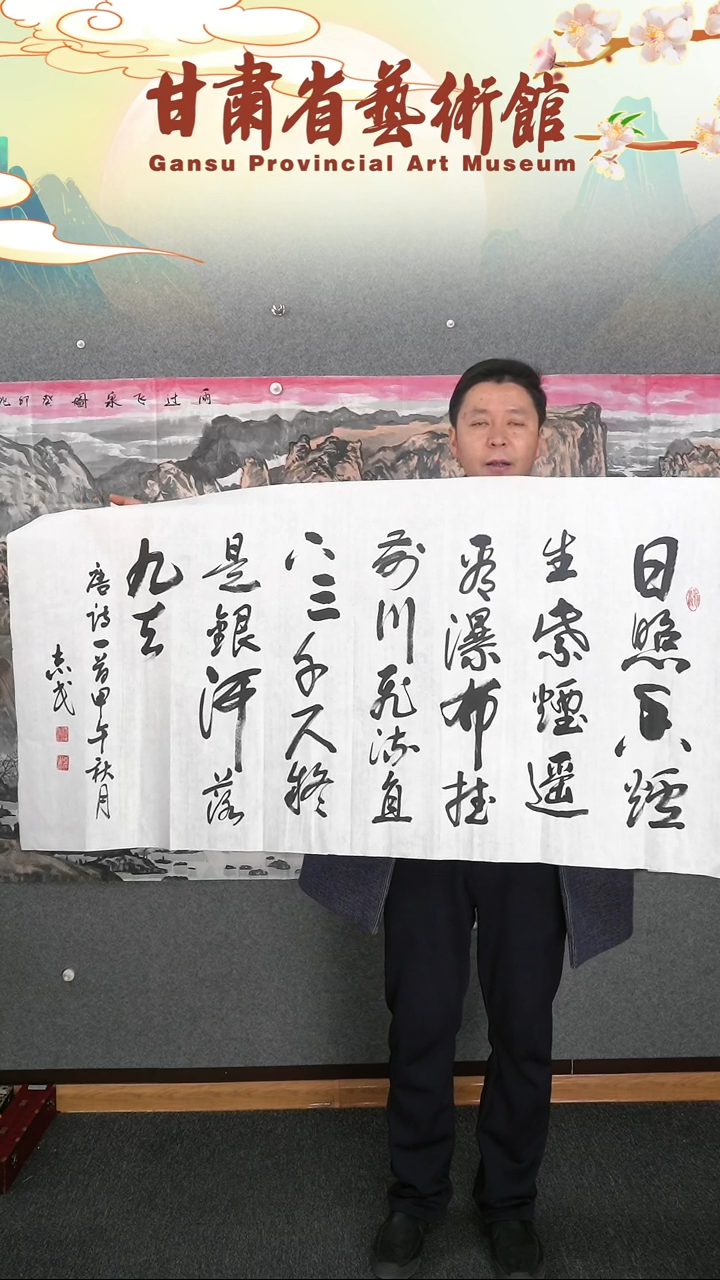 甘肅省藝術館
Gansu Provincial Art Museum
雨过飞泉圖癸卯
日照香爐
生紫煙遥
看瀑布挂
前川飛流直
下三千尺疑
是銀河落
九天
唐詩一首甲午秋月